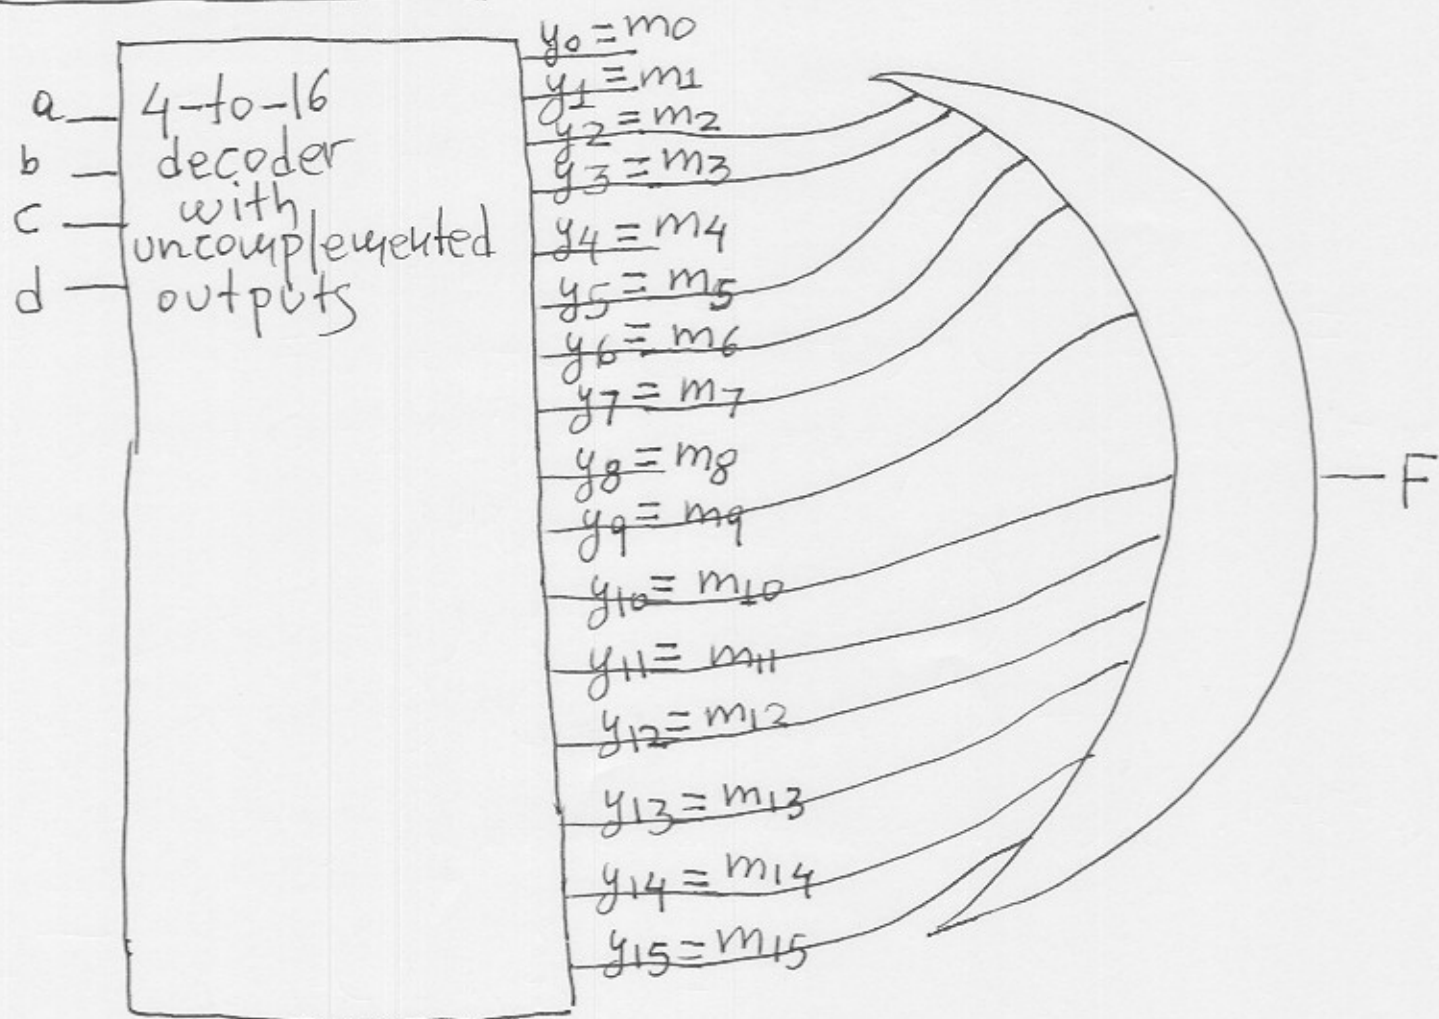 a
b
c
d
4-to-16
decoder
with
uncomplemented
outputs
y0 = m0
y1 = m1
y2 = m2
y3 = m3
y4 = m4
y5 = m5
y6 = m6
y7 = m7
y8 = m8
y9 = m9
y10 = m10
y11 = m11
y12 = m12
y13 = m13
y14 = m14
y15 = m15
F